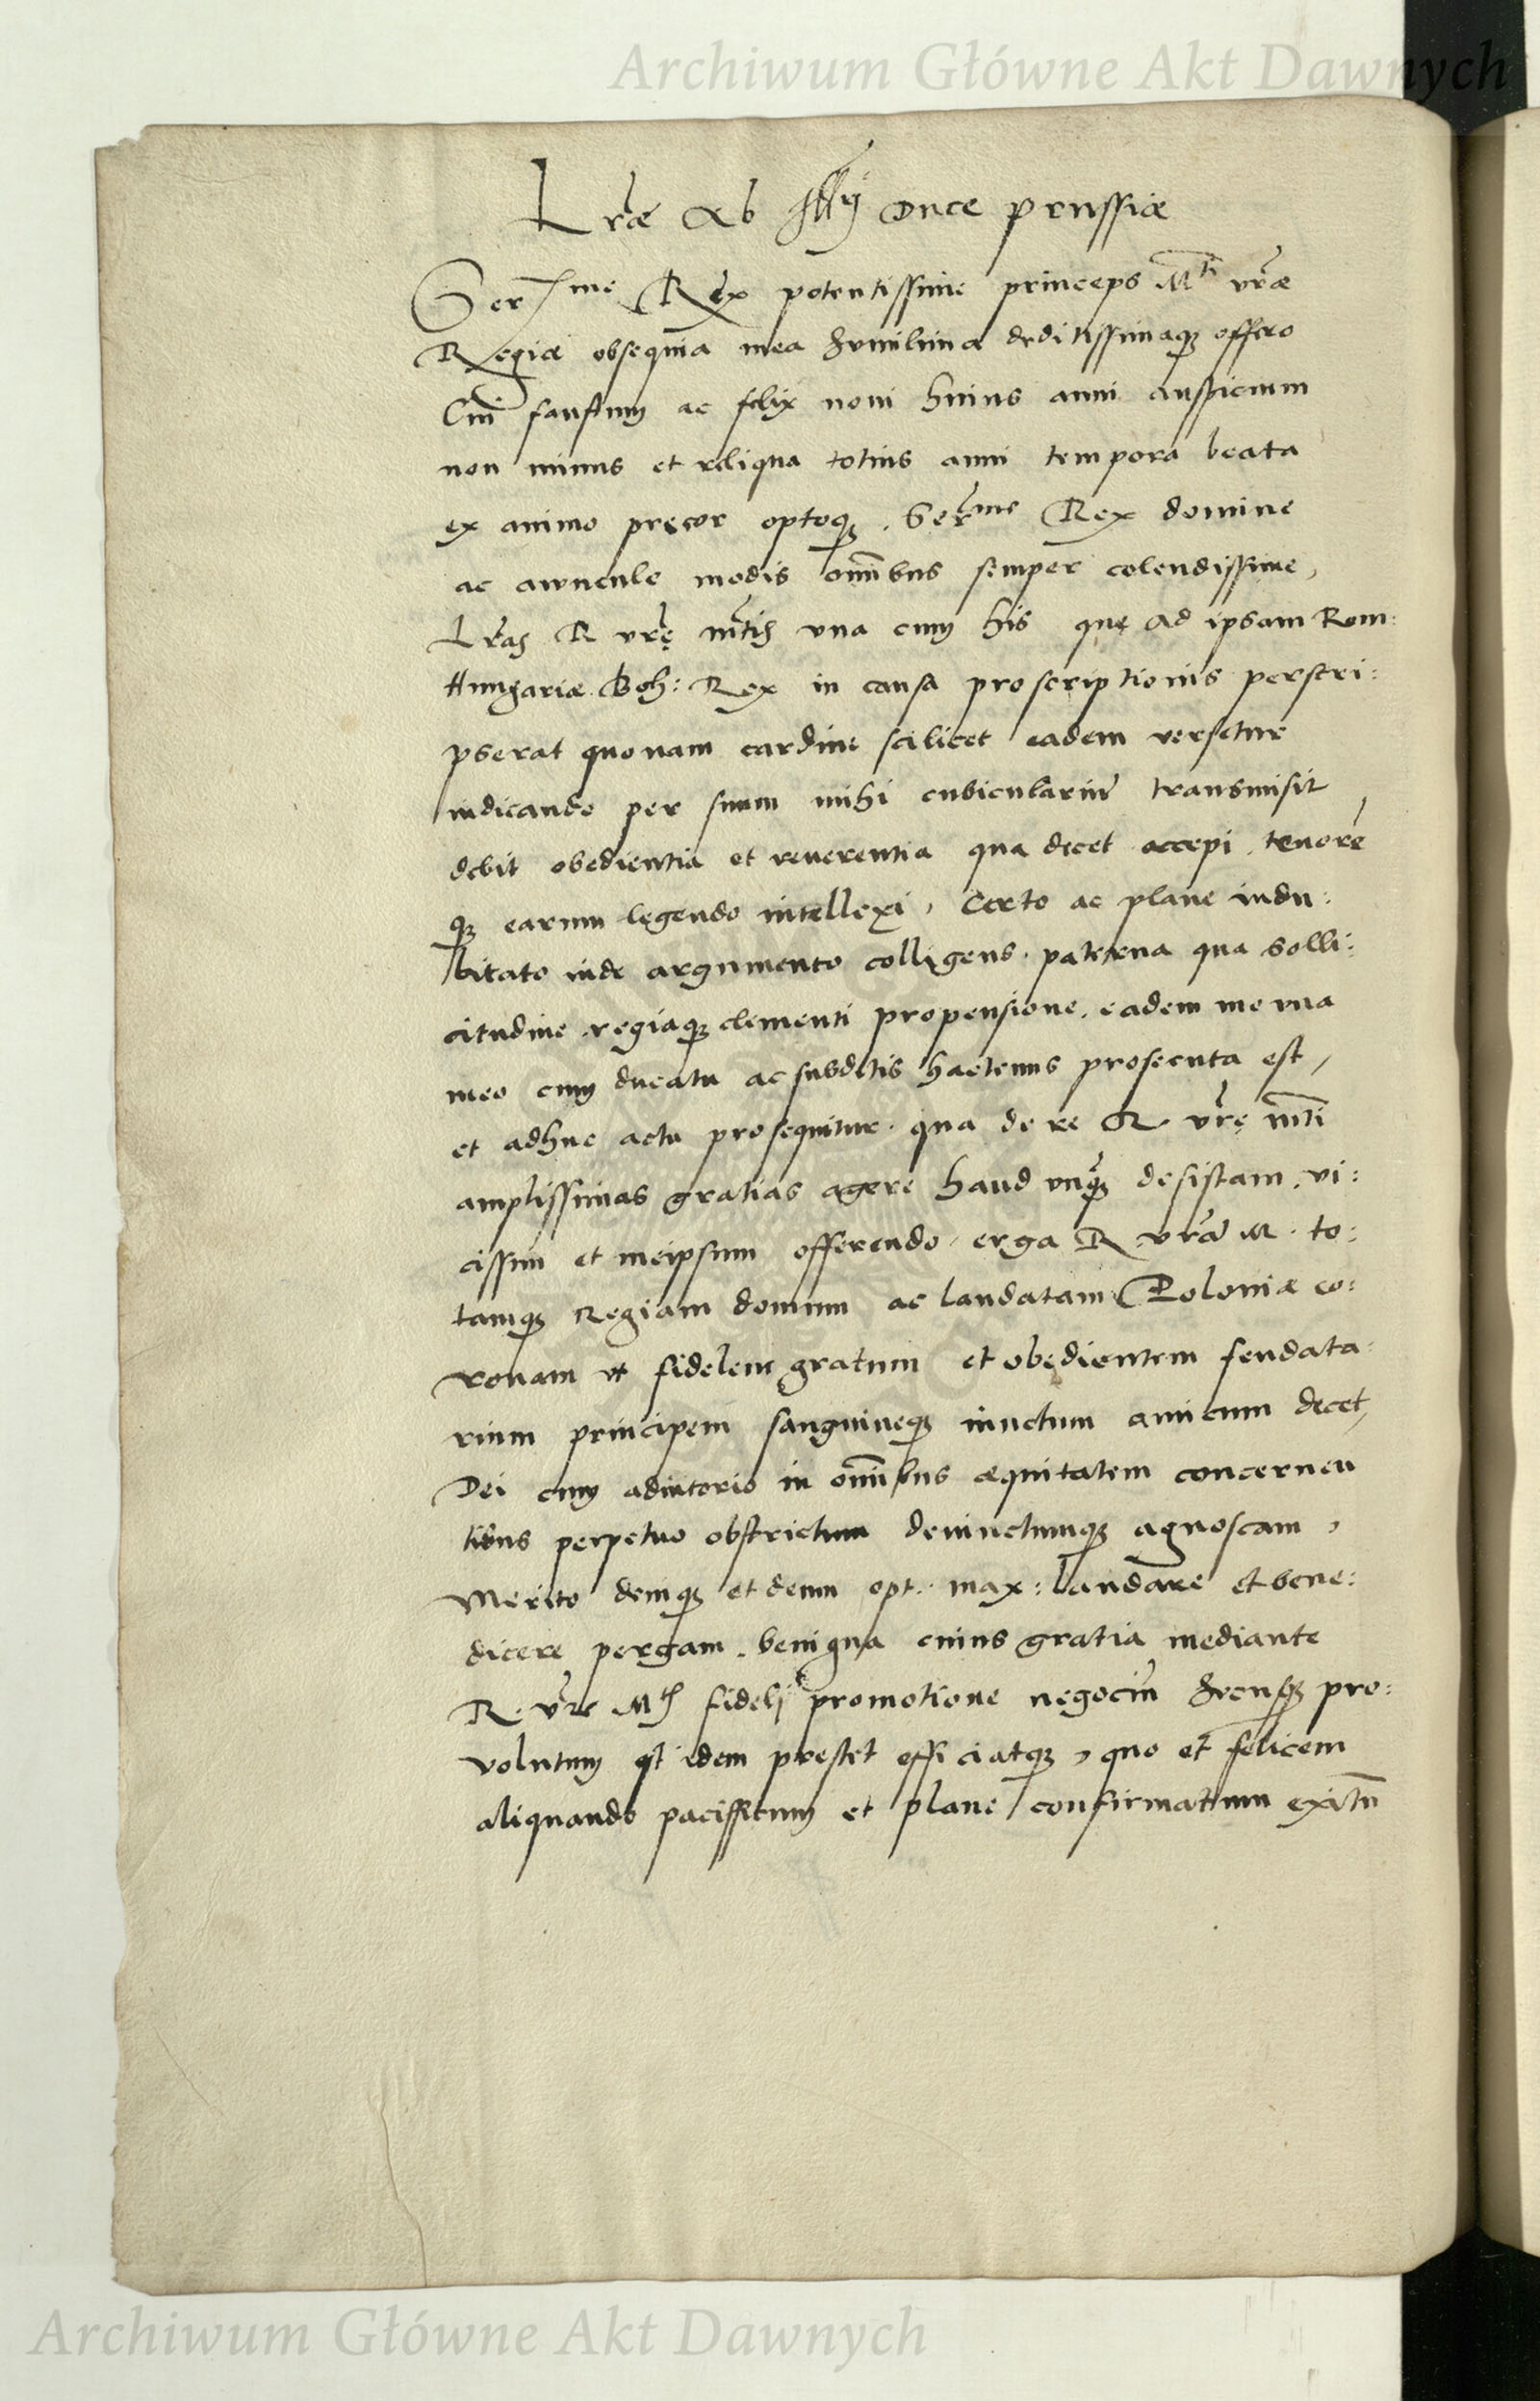 Archiwum Główne Akt Dawnych
Lr̄ae ab Illj Duce prussiae
Serme Rex potentissime princeps Mti vr̄ae
Regiae obsequia mea humilima deditissimaq̨ offero
Cui faustum ac felix noui huius anni auspicium
non minus et reliqua totius anni tempora beata
ex animo precor optoq̨. Serme Rex domine
ac auuncule modis om̄ibus semper colendissime,
Lr̄as R vr̄ę mt̄is vna cum his quę ad ipsam Rom:
Hungariae Boh: Rex in causa proscriptionis perscri:
pserat quonam cardine scilicet eadem versetur
indicando per suum mihi cubiculariū transmisit
debit obedientia et reuerentia qua decet accepi, tenorē
q̨ earum legendo intellexi, Certo ac plane indu:
bitato inde argumento colligens. paterna qua solli:
citudine regiaq̨ clementi propensione. eadem me vna
meo cum ducatu ac subditis hactenus prosecuta est,
et adhuc actu prosequitur. qua de re R. vr̄ę mt̄i
amplissimas gratias agere haud vnq̄ desistam. vi:
cissim et meipsum offerendo. erga R vrā M. to:
tamq̨ Regiam domum ac laudatam Poloniae co:
ronam vt fidelem gratum et obędientem feudata:
rium principem sanguineq̨ iunctum amicum decet,
Dei cum adiutorio in om̄ibus aequitatem concernen
tibus perpetuo obstrictum deuinctumq̨ agnoscam,
Merito deniq̨ et deum opt. max: laudare et bene:
dicere pergam. benigna cuius gratia mediante
R. vr̄e Mtis fideli promotione negociū hucusq̨ pro:
volutum idem prestet efficiatq̨, quo et felicem
aliquando pacifficum et plane confirmatum exitū
Archiwum Główne Akt Dawnych